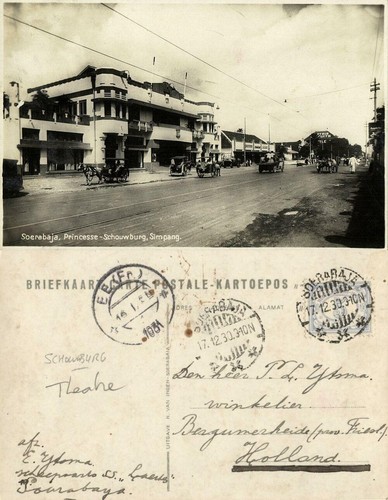 Soerabaja, Princesse-Schouwburg, Simpang.
BRIEFKAART CARTE POSTALE-KARTOEPOS
ADRES ALAMAT
EE (Fr.)
1931
SOERABAJA
17.12.30.3-10N
SOERABAJA
17.12.30.3-10N
SCHOUWBURG
Den heer P. L. Ytsma.
winkelier
Bergumerheide (prov. Friesl.)
Holland.
afz.
E. Ytsma
Soerabaya